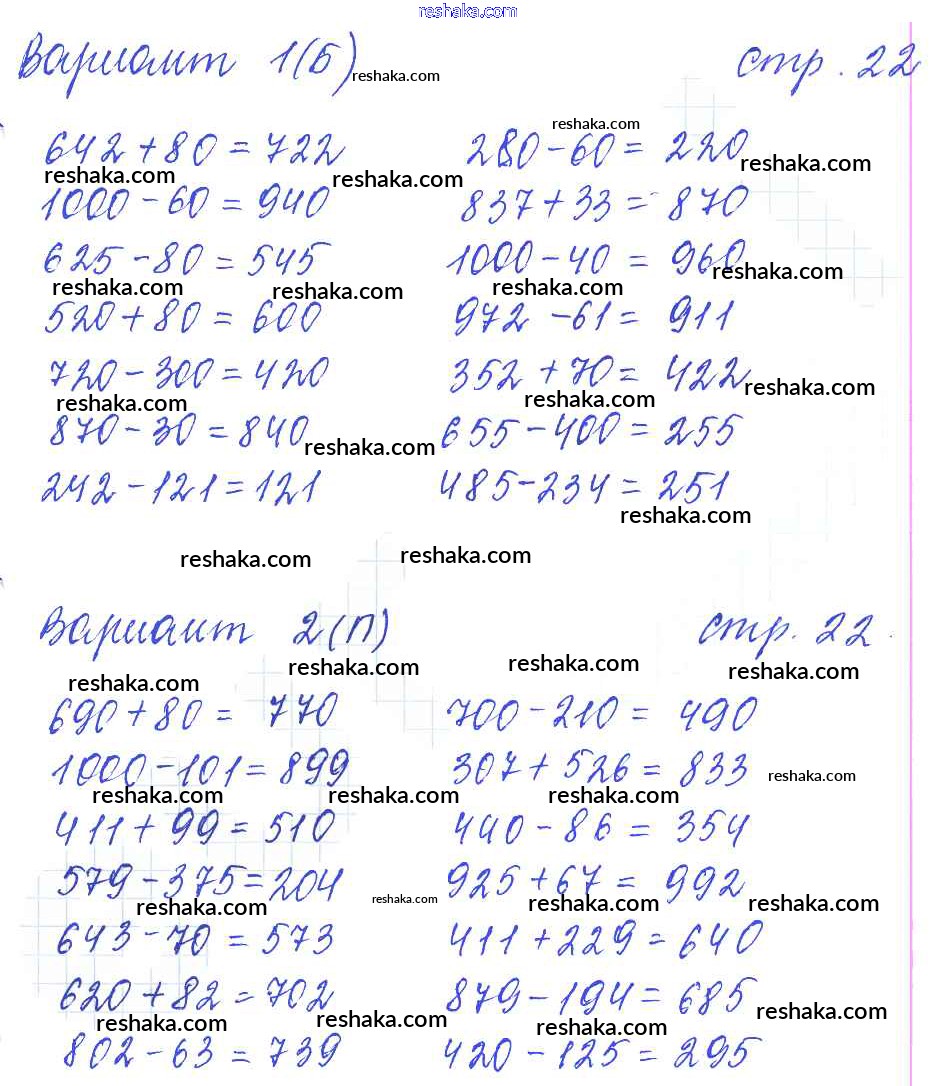 reshaka.com
Вариант 1(Б) reshaka.com стр. 22
reshaka.com
642 + 80 = 722 280 - 60 = 220 reshaka.com
reshaka.com reshaka.com
1000 - 60 = 940 837 + 33 = 870
625 - 80 = 545 1000 - 40 = 960 reshaka.com
reshaka.com reshaka.com reshaka.com
520 + 80 = 600 972 - 61 = 911
720 - 300 = 420 352 + 70 = 422 reshaka.com
reshaka.com reshaka.com
870 - 30 = 840 reshaka.com 655 - 400 = 255
242 - 121 = 121 485 - 234 = 251
reshaka.com
reshaka.com reshaka.com
Вариант 2(П) стр. 22
reshaka.com reshaka.com
reshaka.com
690 + 80 = 770 700 - 210 = 490
1000 - 101 = 899 307 + 526 = 833 reshaka.com
reshaka.com reshaka.com reshaka.com
411 + 99 = 510 440 - 86 = 354
579 - 375 = 204 925 + 67 = 992
reshaka.com reshaka.com reshaka.com reshaka.com
643 - 70 = 573 411 + 229 = 640
620 + 82 = 702 879 - 194 = 685
reshaka.com reshaka.com reshaka.com reshaka.com
802 - 63 = 739 420 - 125 = 295